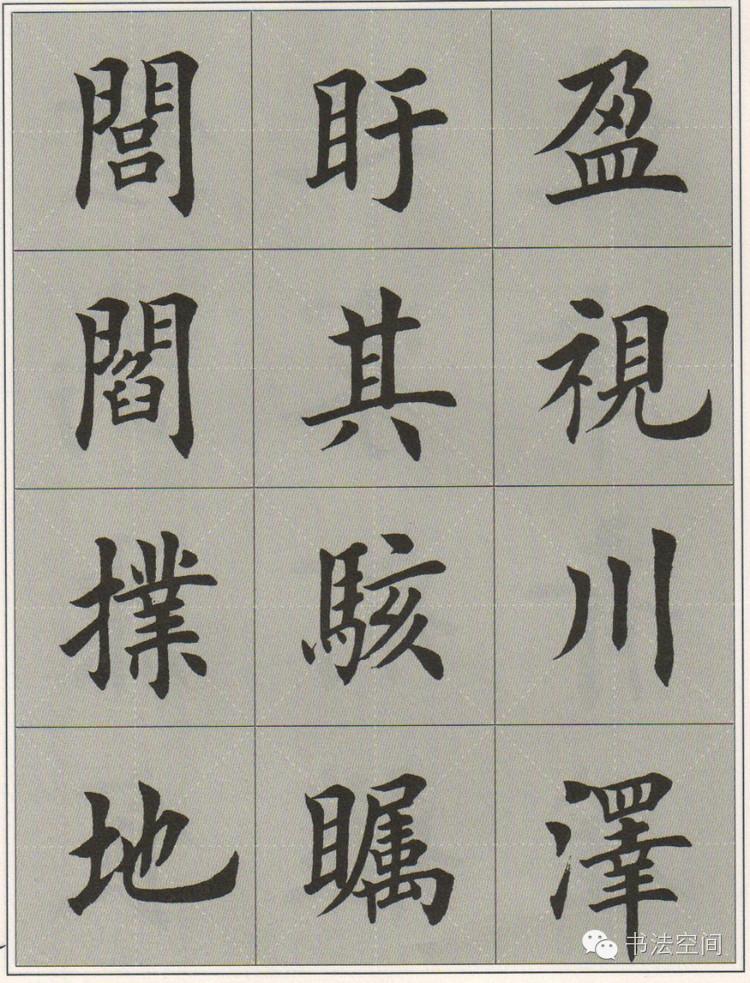 盈視川澤
盱其駭瞩
閭閻撲地
书法空间